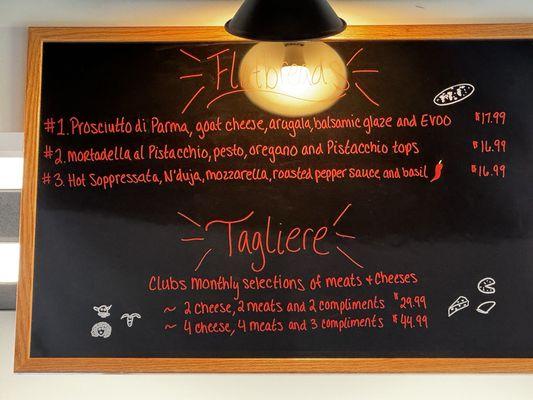 Flatbreads
#1. Prosciutto di Parma, goat cheese, arugala, balsamic glaze and EVOO $17.99
#2. mortadella al Pistacchio, pesto, oregano and Pistacchio tops $16.99
#3. Hot Soppressata, N'duja, mozzarella, roasted pepper sauce, and basil $16.99
Tagliere
Clubs monthly selections of meats + Cheeses
~ 2 cheese, 2 meats and 2 compliments $29.99
~ 4 cheese, 4 meats and 3 compliments $44.99